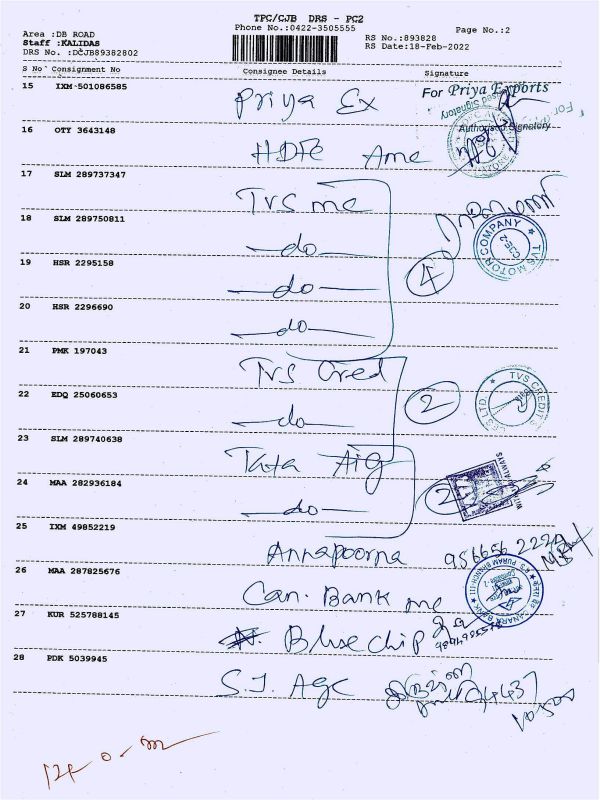 TPC/CJB DRS - PC2
Phone No.:0422-3505555
Page No.:2
Area :DB ROAD
RS No.:893828
Staff :KALIDAS
RS Date:18-Feb-2022
DRS No. :DCJB89382802
S No Consignment No Consignee Details Signature
15 IXM 501086585 Priya Ex
For Priya Exports
Authorised Signatory
16 OTY 3643148 HDFC
17 SLM 289737347 TVS me
18 SLM 289750811 -do-
TVS MOTOR COMPANY
CJB-2
19 HSR 2295158 -do- 4
20 HSR 2296690 -do-
21 PMK 197043 TVS Cred
22 EDQ 25060653 -do- 2
TVS CREDIT S
ES LTD.
23 SLM 289740638 Tata Aig
24 MAA 282936184 -do- 2
25 IXM 49852219 Annapoorna 956656 2229
26 MAA 287825676 Can. Bank me
CANARA BANK
R.S. PURAM BRANCH
27 KUR 525788145 Blue chip
28 PDK 5039945 S.J. Age